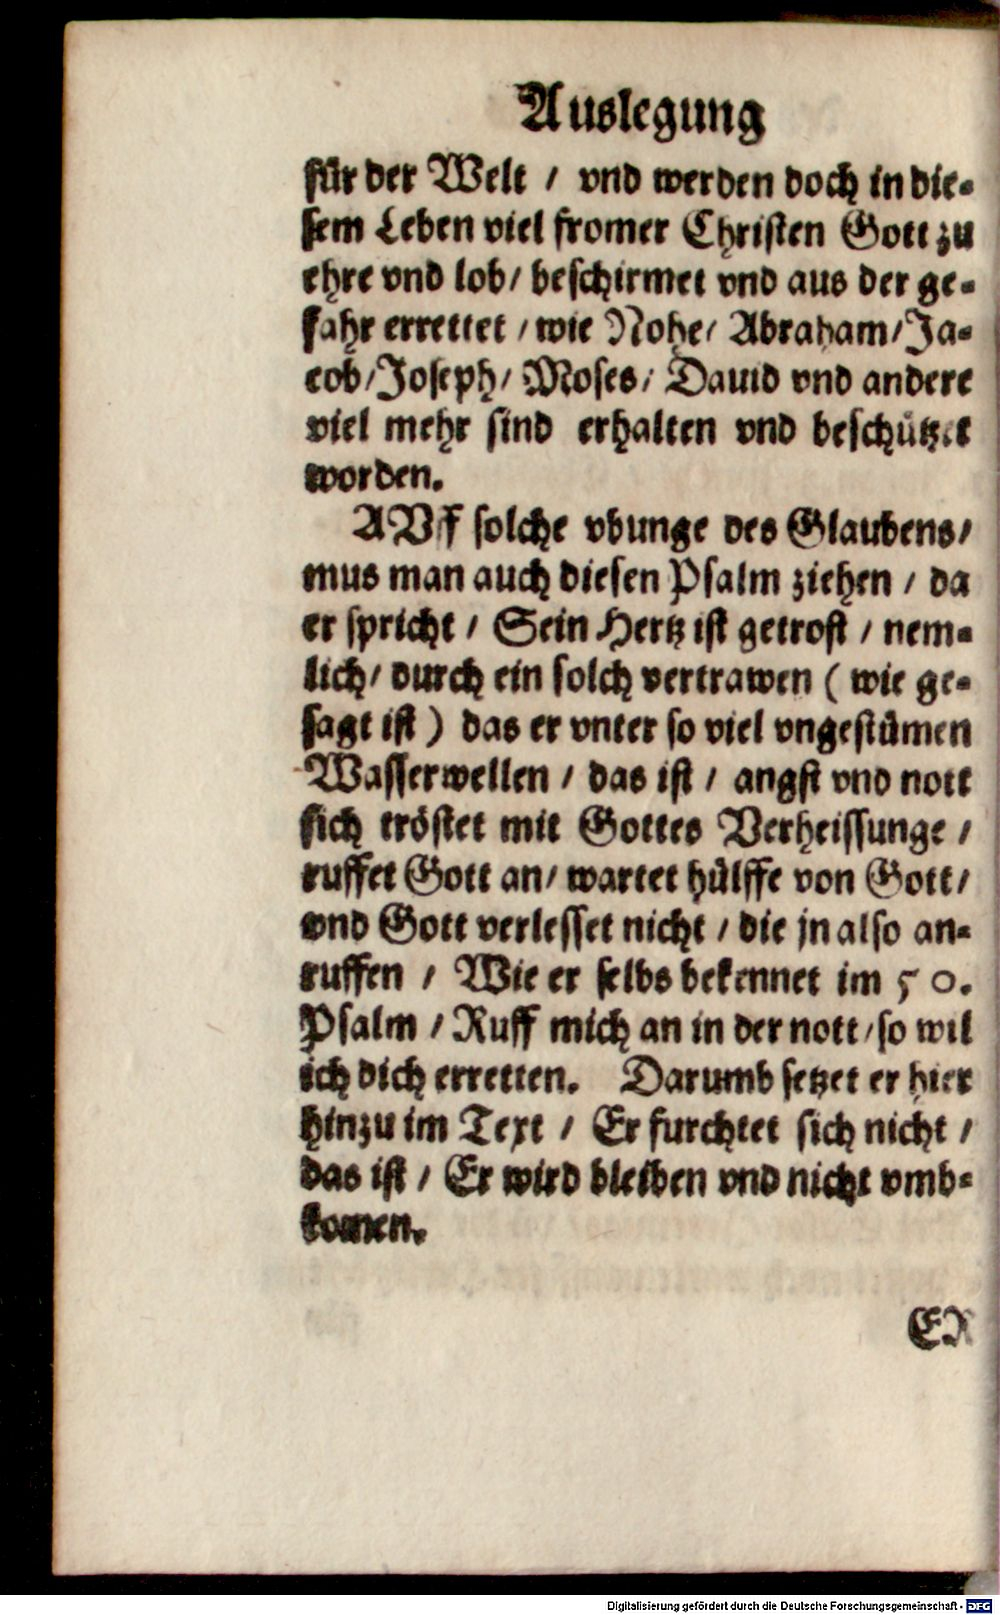 Auslegung
für der Welt / vnd werden doch in die-
sem Leben viel fromer Christen Gott zu
ehre vnd lob / beschirmet vnd aus der ge-
fahr errettet / wie Nohe / Abraham / Ja-
cob / Joseph / Moses / Dauid vnd andere
viel mehr sind erhalten vnd beschützet
worden.
AVff solche vbunge des Glaubens /
mus man auch diesen Psalm ziehen / da
er spricht / Sein Hertz ist getrost / nem-
lich / durch ein solch vertrawen ( wie ge-
sagt ist ) das er vnter so viel vngestümen
Wasserwellen / das ist / angst vnd nott
sich tröstet mit Gottes Verheissunge /
ruffet Gott an / wartet hülffe von Gott /
vnd Gott verlesset nicht / die jn also an-
ruffen / Wie er selbs bekennet im 50.
Psalm / Ruff mich an in der nott / so wil
ich dich erretten. Darumb setzet er hier
hinzu im Text / Er furchtet sich nicht /
das ist / Er wird bleiben vnd nicht vmb-
komen.
ER
Digitalisierung gefördert durch die Deutsche Forschungsgemeinschaft - DFG